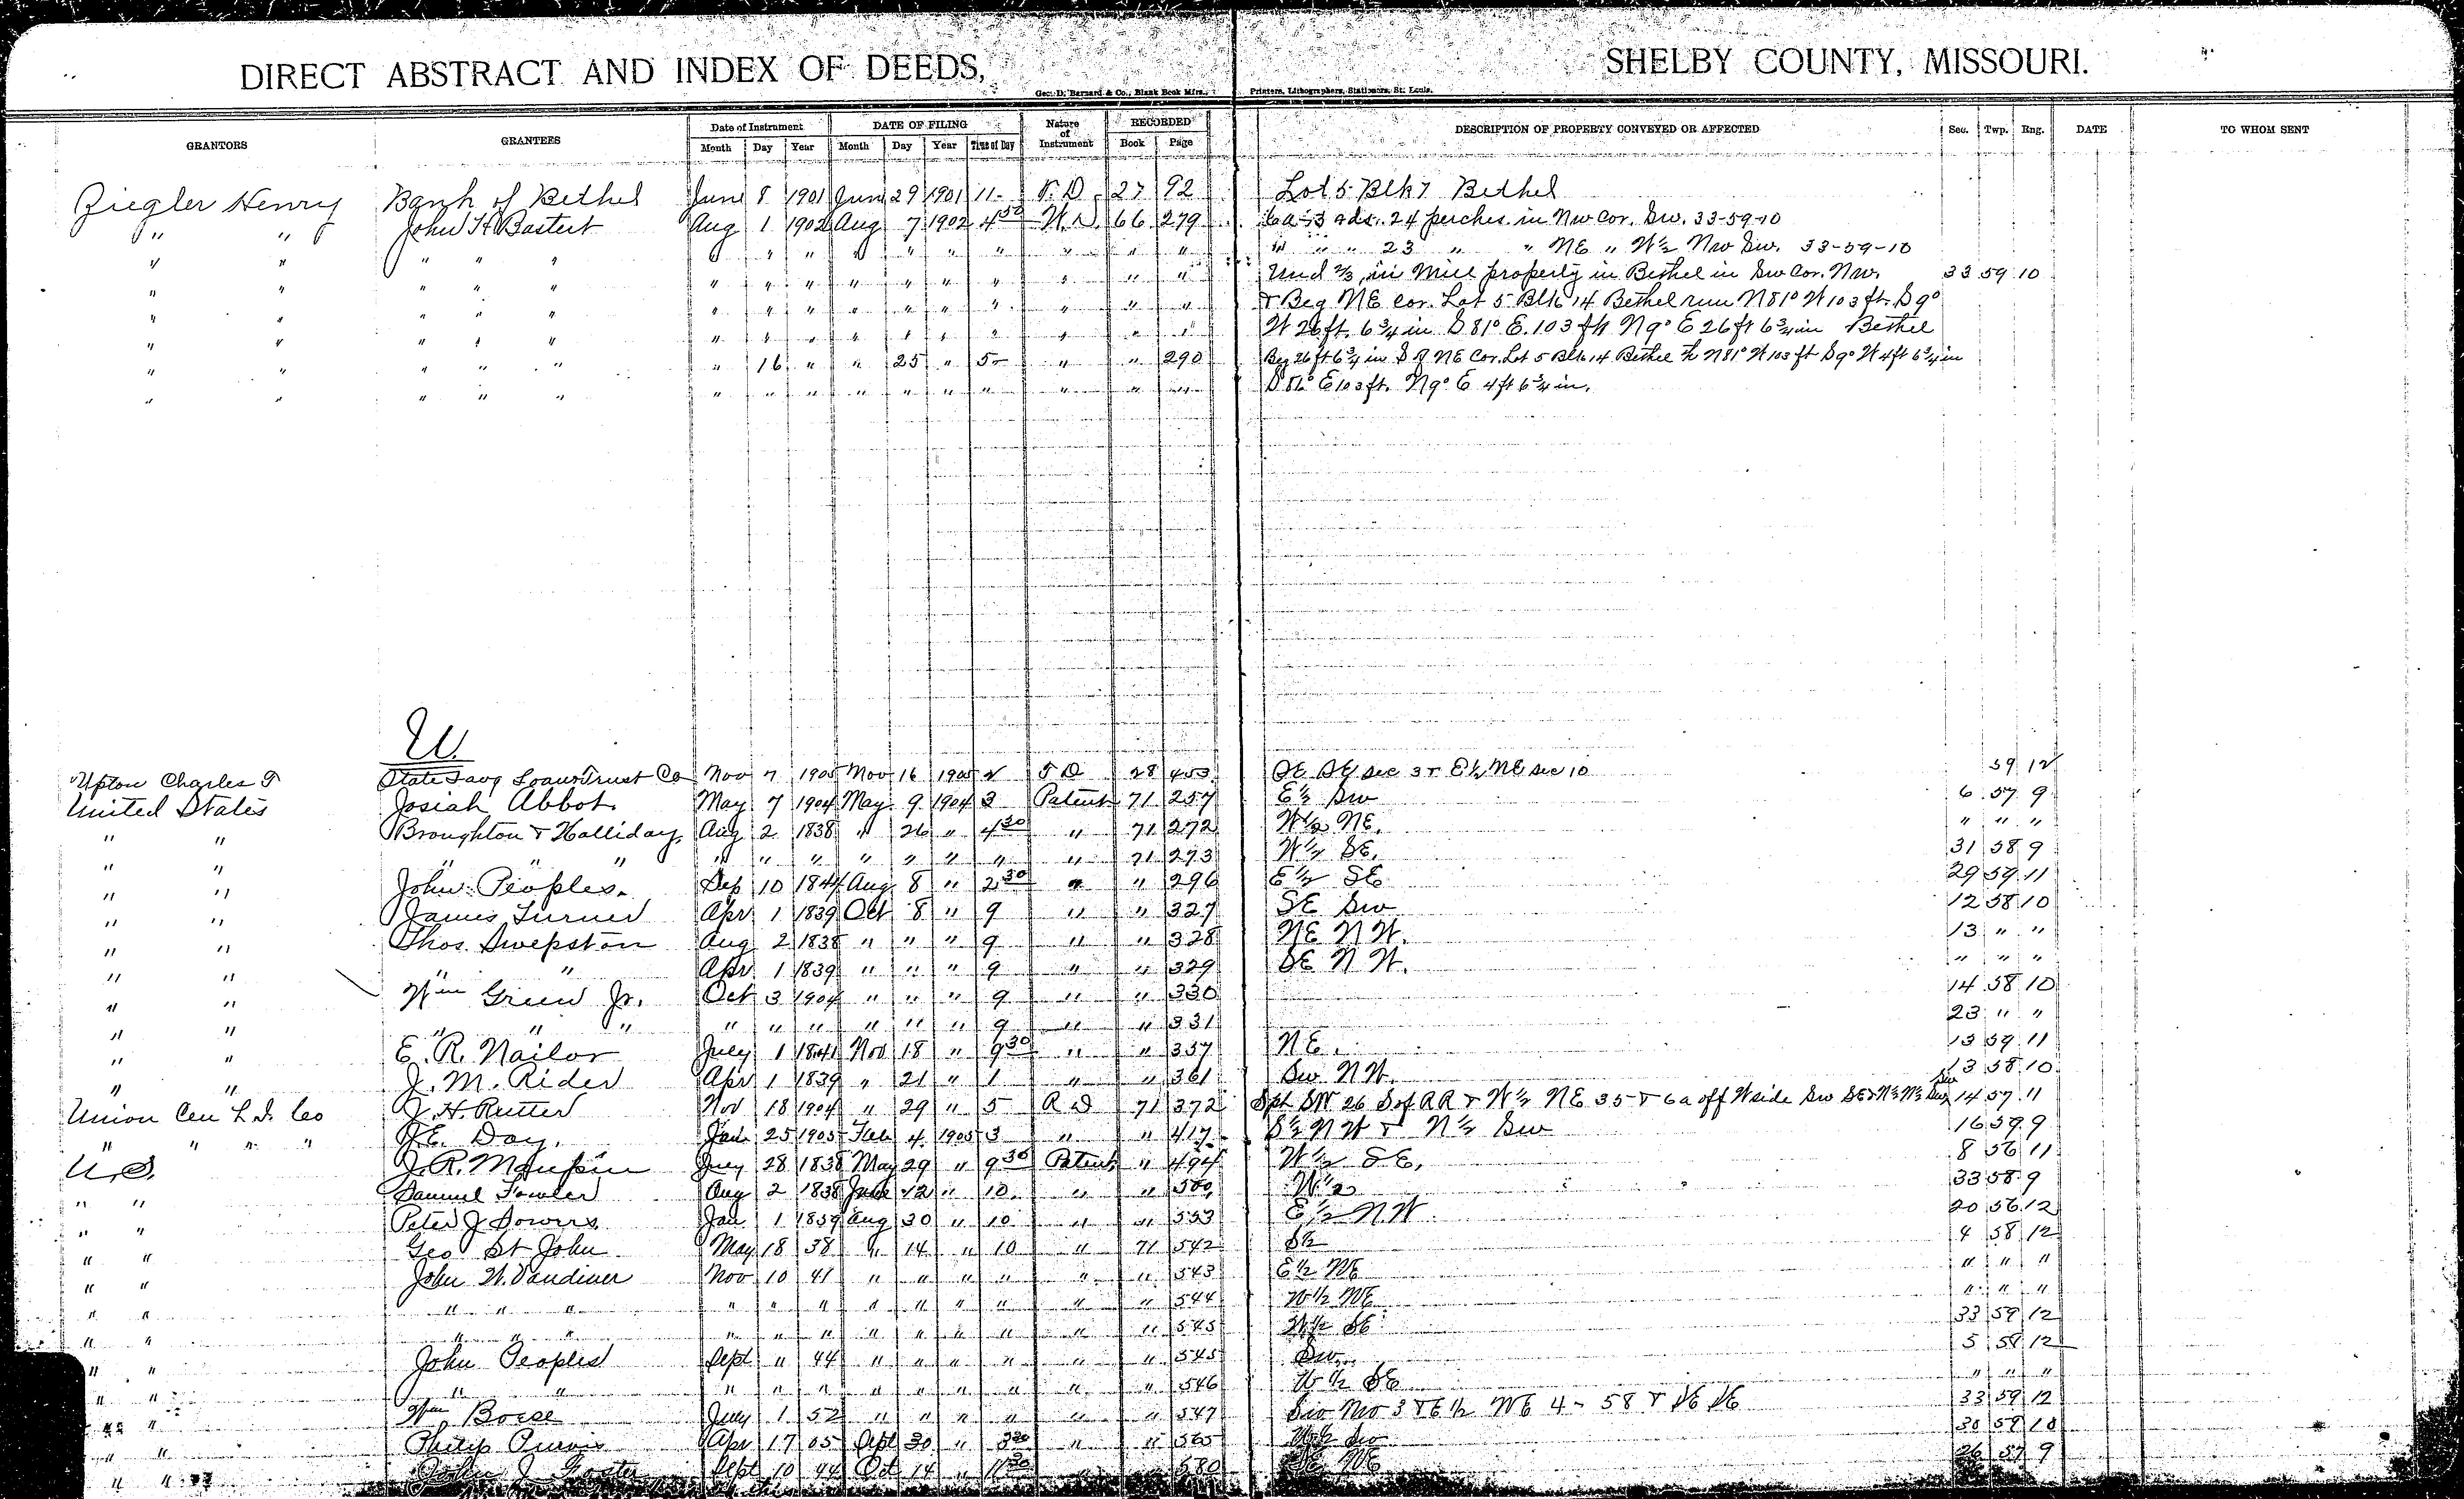 DIRECT ABSTRACT AND INDEX OF DEEDS, SHELBY COUNTY, MISSOURI.
Geo. D. Barnard & Co., Blank Book Mfrs., Printers, Lithographers, Stationers, St. Louis.
GRANTORS GRANTEES Date of Instrument DATE OF FILING Nature of Instrument RECORDED DESCRIPTION OF PROPERTY CONVEYED OR AFFECTED Sec. Twp. Rng. DATE TO WHOM SENT
Month Day Year Month Day Year Time of Day Book Page
Ziegler Henry Bank of Bethel June 8 1901 June 29 1901 11- T. D. 27 92 Lot 5 Blk 7 Bethel
" " John H Bastert Aug 1 1902 Aug 7 1902 4 30 W. D. 66 279 6 a - 3 rds. 24 perches in Nw Cor. Sw. 33-59-10
" " " " " " " " " " " " " " " " " " 23 " " NE " W½ Nw Sw. 33-59-10
" " " " " " " " " " " " " " " Und ⅔ in Mill property in Bethel in Sw Cor. Nw. 33 59 10
" " " " " " " " " " " " " " " & Beg NE Cor. Lot 5 Blk 14 Bethel run N 81° W 103 ft. S 9°
" " " " " " " " " " " " " " " W 26 ft. 6¾ in S 81° E. 103 ft N 9° E 26 ft 6¾ in Bethel
" " " " " " 16 " " 25 " 5- " " 290 Beg 26 ft 6¾ in S of NE Cor. Lot 5 Blk 14 Bethel Th N 81° W 103 ft S 9° W 4 ft 6¾ in
" " " " " " " " " " " " " " " S 81° E 103 ft. N 9° E 4 ft 6¾ in.
U.
Upton Charles T State Savg Loan & Trust Co Nov 7 1905 Nov 16 1905 2 T D 28 453 SE SE Sec 3 & E½ NE Sec 10 59 12
United States Josiah Abbot. May 7 1904 May 9 1904 3 Patent 71 257 E½ Sw 6 57 9
" " Broughton & Halliday, Aug 2 1838 " 26 " 4 30 " 71 272 W½ NE. " " "
" " " " " " " " " " " " " 71 273 W½ SE. 31 58 9
" " John Peoples. Sep 10 1844 Aug 8 " 2 30 " " 296 E½ SE 29 59 11
" " James Turner Apr 1 1839 Oct 8 " 9 " " 327 SE Sw 12 58 10
" " Thos. Swepston Aug 2 1838 " " " 9 " " 328 NE N W. 13 " "
" " " " Apr 1 1839 " " " 9 " " 329 SE N W. " " "
" " Wm Green Jr. Oct 3 1904 " " " 9 " " 330 14 58 10
" " " " " " " " " " " 9 " " 331 23 " "
" " E. R. Nailor July 1 1841 Nov 18 " 9 30 " " 357 NE. 13 59 11
" " J. M. Rider Apr 1 1839 " 21 " 1 " " 361 Sw N W. 13 58 10
Union Cen L. I. Co J. H. Rutter Nov 18 1904 " 29 " 5 R D 71 372 Spt SW 26 S of RR & W½ NE 35 & 6 a off W side Sw SE & N½ N½ Sw Sw 14 57 11
" " " " J. E. Day. Jan 25 1905 Feb 4 1905 3 " " 417 S½ N W & N½ Sw 16 59 9
U. S. J. R. Maupin July 28 1838 May 29 " 9 30 Patent " 494 W½ SE. 8 56 11
" " Samuel Fowler Aug 2 1838 June 12 " 10 " " 500 W½ 33 58 9
" " Peter J Sowers Jan 1 1839 Aug 30 " 10 " " 553 E½ N W. 20 56 12
" " Geo St John May 18 38 " 14 " 10 " 71 542 S½ 4 58 12
" " John W. Vandiver Nov 10 41 " " " " " " 543 E½ NE " " "
" " " " " " " " " " " " " " 544 W½ NE " " "
" " " " " " " " " " " " " " 545 W½ SE 33 59 12
" " John Peoples Sept " 44 " " " " " " 545 Sw. 5 58 12
" " " " " " " " " " " " " 546 W½ SE " " "
" " Wm Boese July 1 52 " " " " " " 547 Sw Nw 3 & E½ NE 4 - 58 & SE SE 33 59 12
" " Philip Purvis Apr 17 05 Sept 30 " 3 30 " " 565 W½ Sw 30 59 10
" " John J Foster Sept 10 44 Oct 14 " 11 30 580 NE 26 57 9